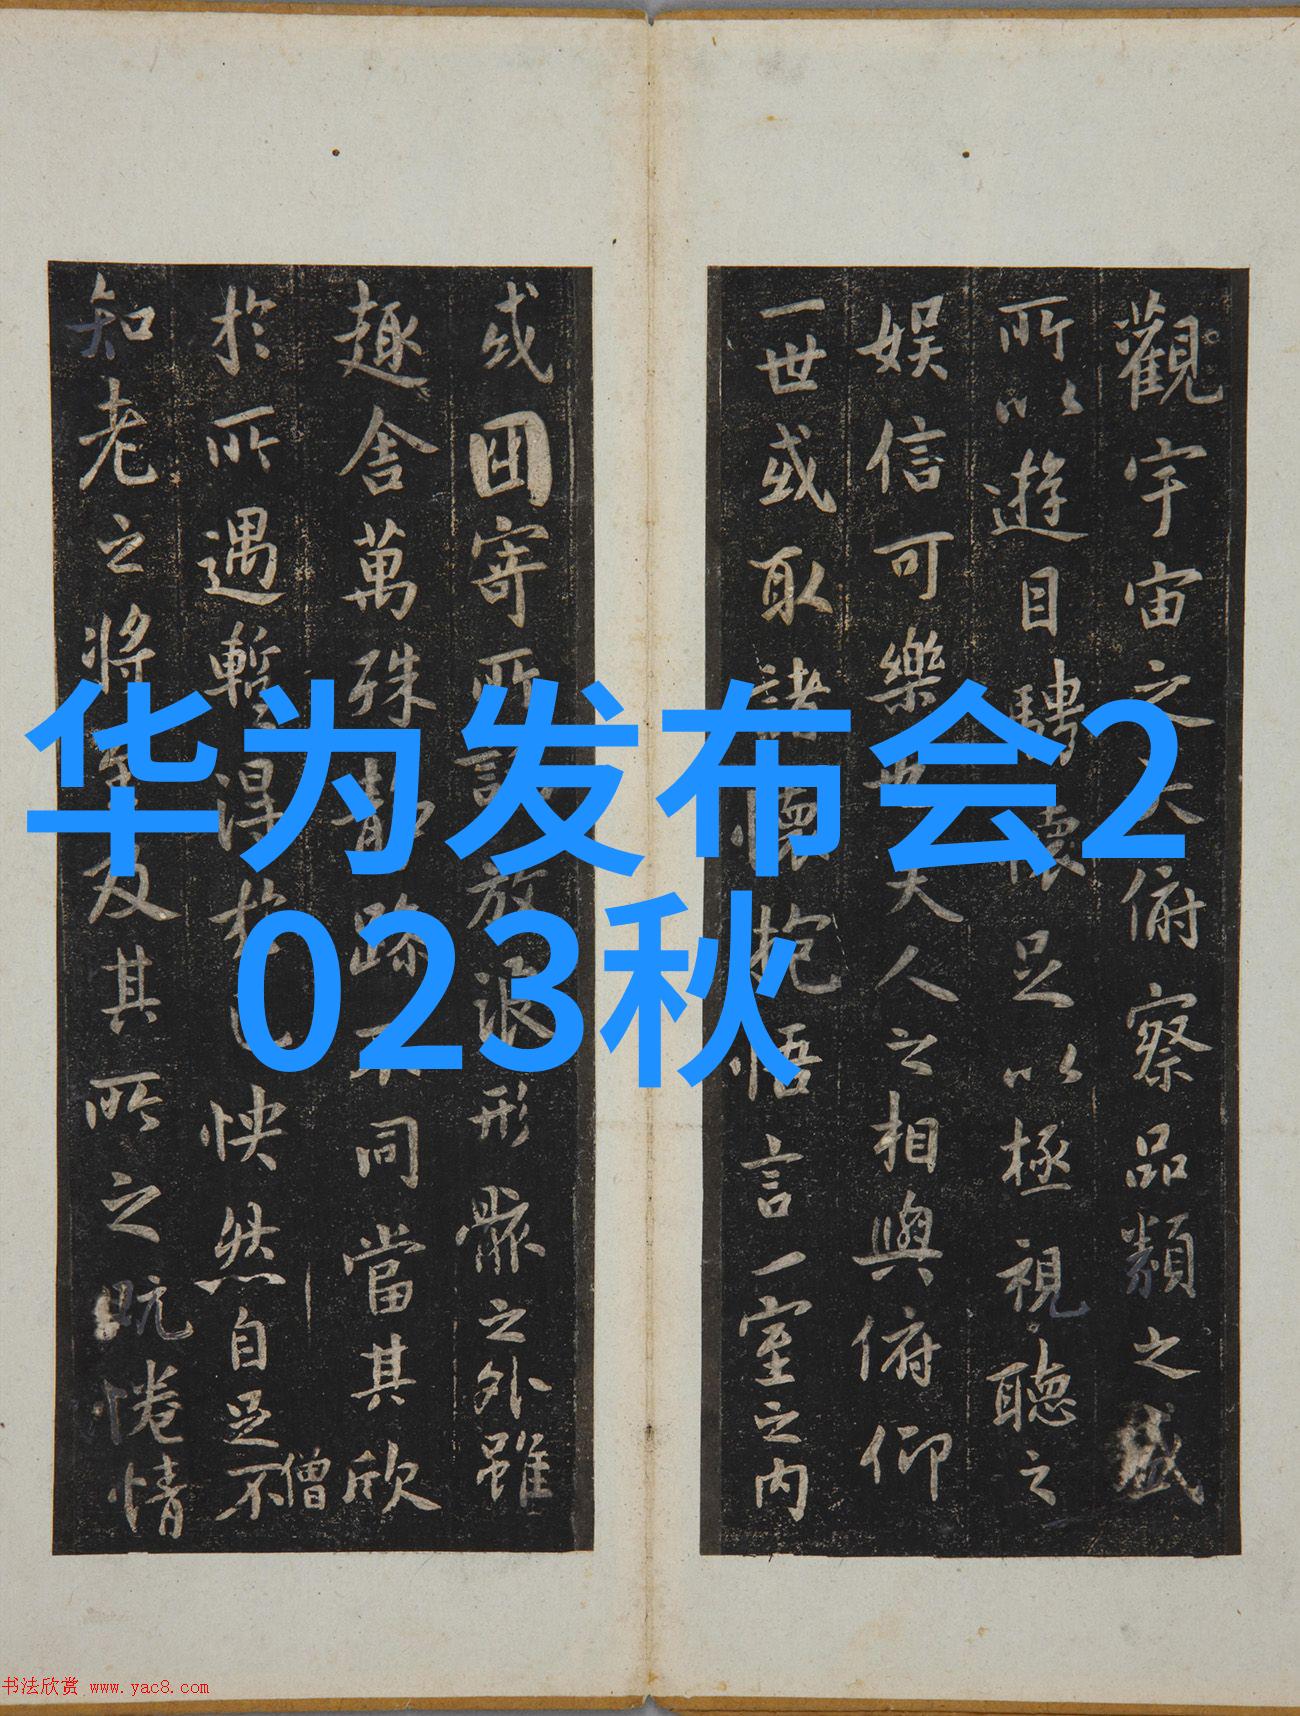 华为发布会2
023秋
觀宇宙之大俯察品類之盛
所以遊目騁懷足以極視聽之
娱信可樂也夫人之相與俯仰
一世或取諸懷抱悟言一室之内
或因寄所託放浪形骸之外雖
趣舍萬殊静躁不同當其欣
於所遇暫得於己快然自足不
僧
知老之將至及其所之既惓情
书法欣赏 www.yac8.com